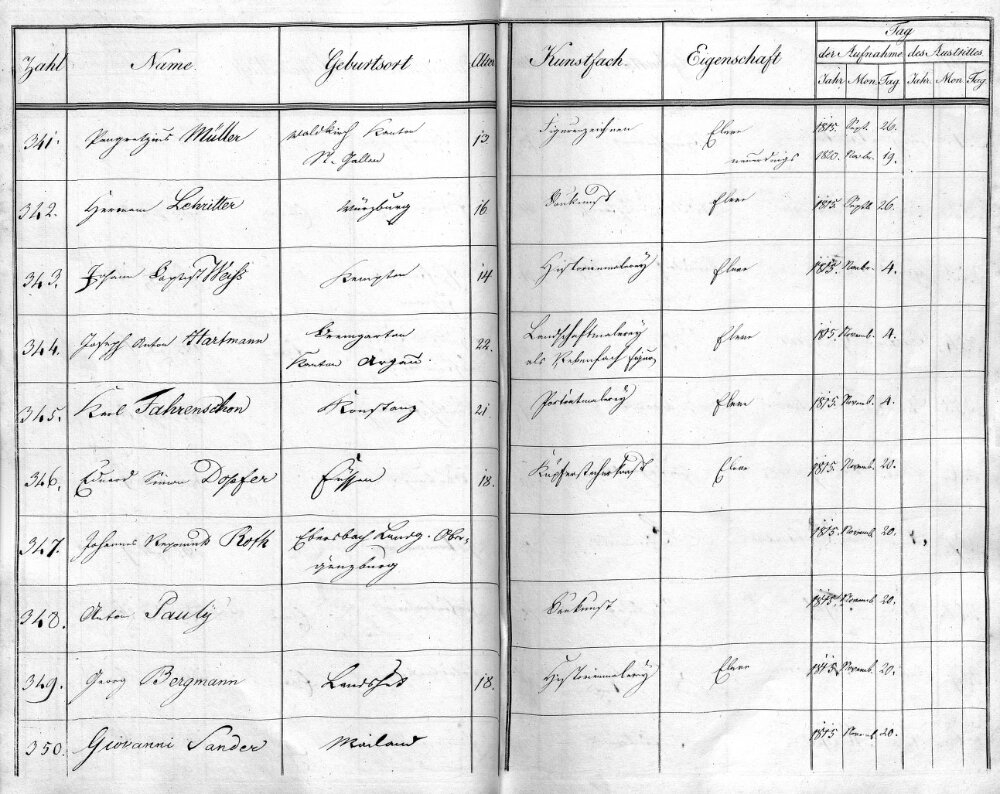 Zahl Name Geburtsort Alter Kunstfach. Eigenschaft Tag
der Aufnahme des Austrittes
Jahr Mon. Tag Jahr. Mon. Tag
341. Pangratzius Müller Waldkirch Kanton 13. Figurenzeichnen Eleve 1815. Sept. 26.
St. Gallen neuerdings 1820. Novbr. 19.
342. Hermann Lehritter Würzburg 16. Baukunst Eleve 1815. Septb. 26.
343. Johann Baptist Weiß Kempten 14 Historienmalerey Eleve 1815. Novbr. 4.
344. Joseph Anton Hartmann Bremgarten 22. Landschaftmalerey Eleve 1815. Novemb. 4.
Kanton Argau. als Nebenfach
345. Karl Fahrenschon Konstanz 21. Portraitmalerey Eleve 1815. Novemb. 4.
346. Eduard Simon Dopfer Füssen 18. Kupferstecherkunst Eleve 1815. Novemb. 20.
347. Johannes Nepomuk Roth Ebersbach Landg. Ober- 1815. Novemb. 20.
günzburg
348. Anton Pauly Baukunst 1815. Novemb. 20.
349. Georg Bergmann Landshut 18. Historienmalerey Eleve Novemb. 20.
350. Giovanni Sander Mailand 1815 Novemb. 20.